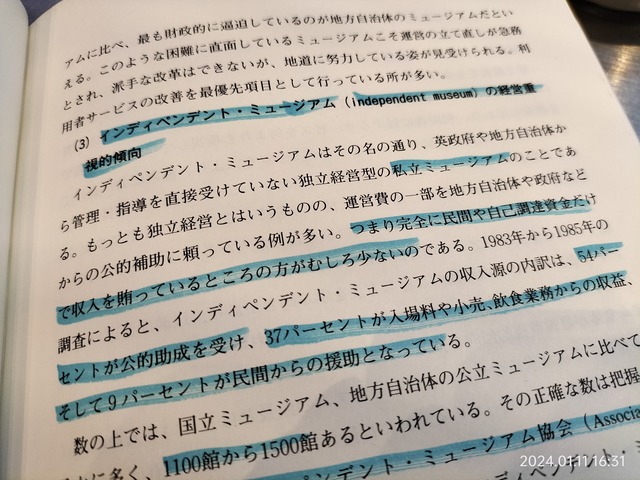 アムに比べ、最も財政的に逼迫しているのが地方自治体のミュージアムだとい
える。このような困難に直面しているミュージアムこそ運営の立て直しが急務
とされ、派手な改革はできないが、地道に努力している姿が見受けられる。利
用者サービスの改善を最優先項目として行っている所が多い。
(3) インディペンデント・ミュージアム（independent museum）の経営重
視的傾向
インディペンデント・ミュージアムはその名の通り、英政府や地方自治体か
ら管理・指導を直接受けていない独立経営型の私立ミュージアムのことであ
る。もっとも独立経営とはいうものの、運営費の一部を地方自治体や政府など
からの公的補助に頼っている例が多い。つまり完全に民間や自己調達資金だけ
で収入を賄っているところの方がむしろ少ないのである。1983年から1985年の
調査によると、インディペンデント・ミュージアムの収入源の内訳は、54パー
セントが公的助成を受け、37パーセントが入場料や小売、飲食業務からの収益、
そして9パーセントが民間からの援助となっている。
数の上では、国立ミュージアム、地方自治体の公立ミュージアムに比べて
に多く、1100館から1500館あるといわれている。その正確な数は把握
ンデント・ミュージアム協会（Associa
2024.01.11 16:31